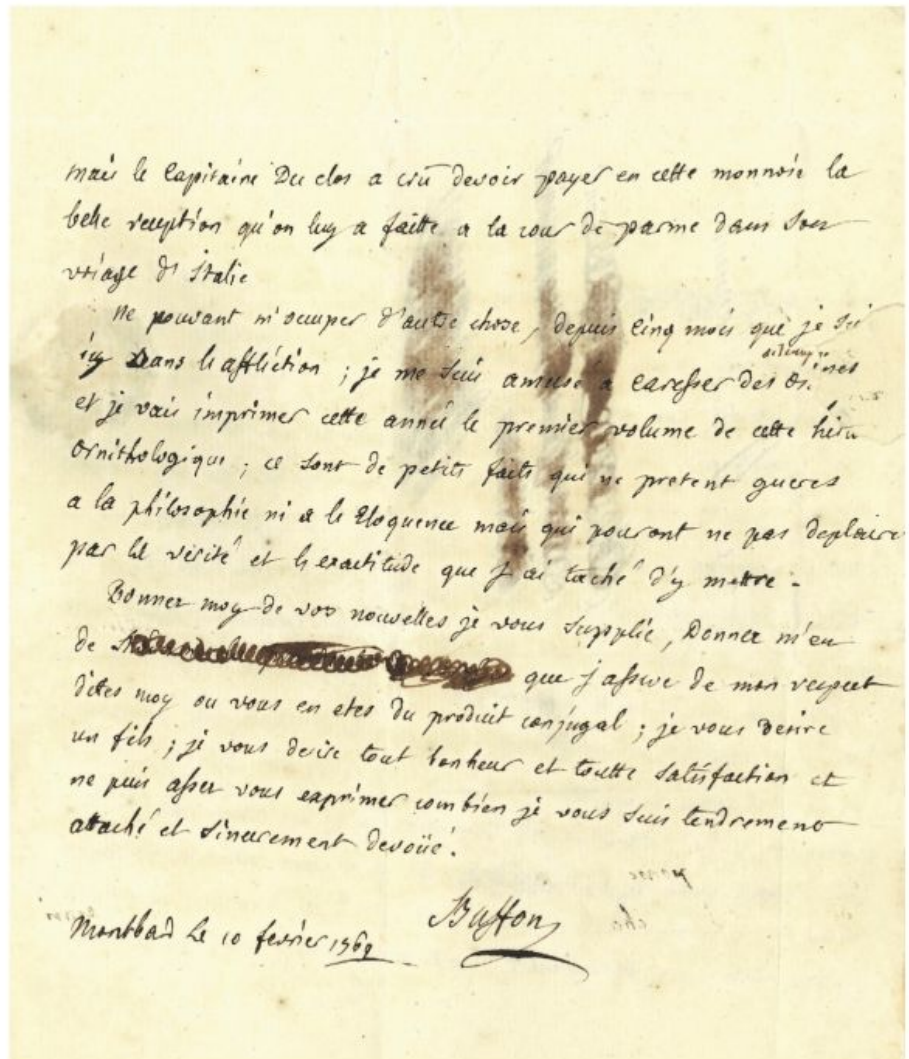 mais le Capitaine Du clos a crû devoir payer en cette monnoie la
belle reception qu'on luy a faitte a la cour de parme dans son
voiage d'Italie
Ne pouvant m'occuper d'autre chose, depuis cinq mois que je sui
icy Dans l'affliction ; je me suis amusé a caresser des
et je vais imprimer cette année le premier volume de cette
Ornithologique ; ce sont de petits faits qui ne pretent gueres
a la philosophie ni a l'Eloquence mais qui pouront ne pas deplaire
par la verité et l'exactitude que j'ai taché d'y mettre.
Donnez moy de vos nouvelles je vous supplie, Donnez m'en
de que j'assure de mon respect
dites moy ou vous en etes du produit conjugal ; je vous desire
un fils ; je vous desire tout bonheur et toutte satisfaction et
ne puis assez vous exprimer combien je vous suis tendrement
attaché et sincerement devoüé.
Buffon
Montbard Le 10 fevrier 1769